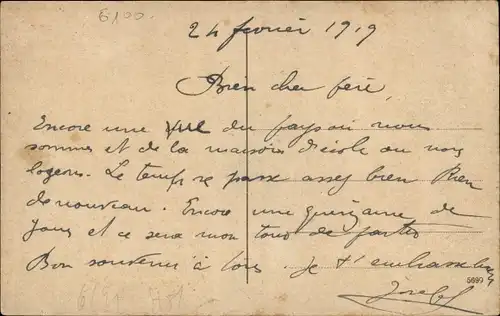 6100.
24 fevrier 1919
Bien cher père,
Encore une vue du pays où nous
sommes et de la maison d'école ou nous
logeons. Le temps se passe assez bien Rien
de nouveau. Encore une quinzaine de
jours et ce sera mon tour de partir
Bon souvenir à tous. je t'embrasse bien
5699
Joseph